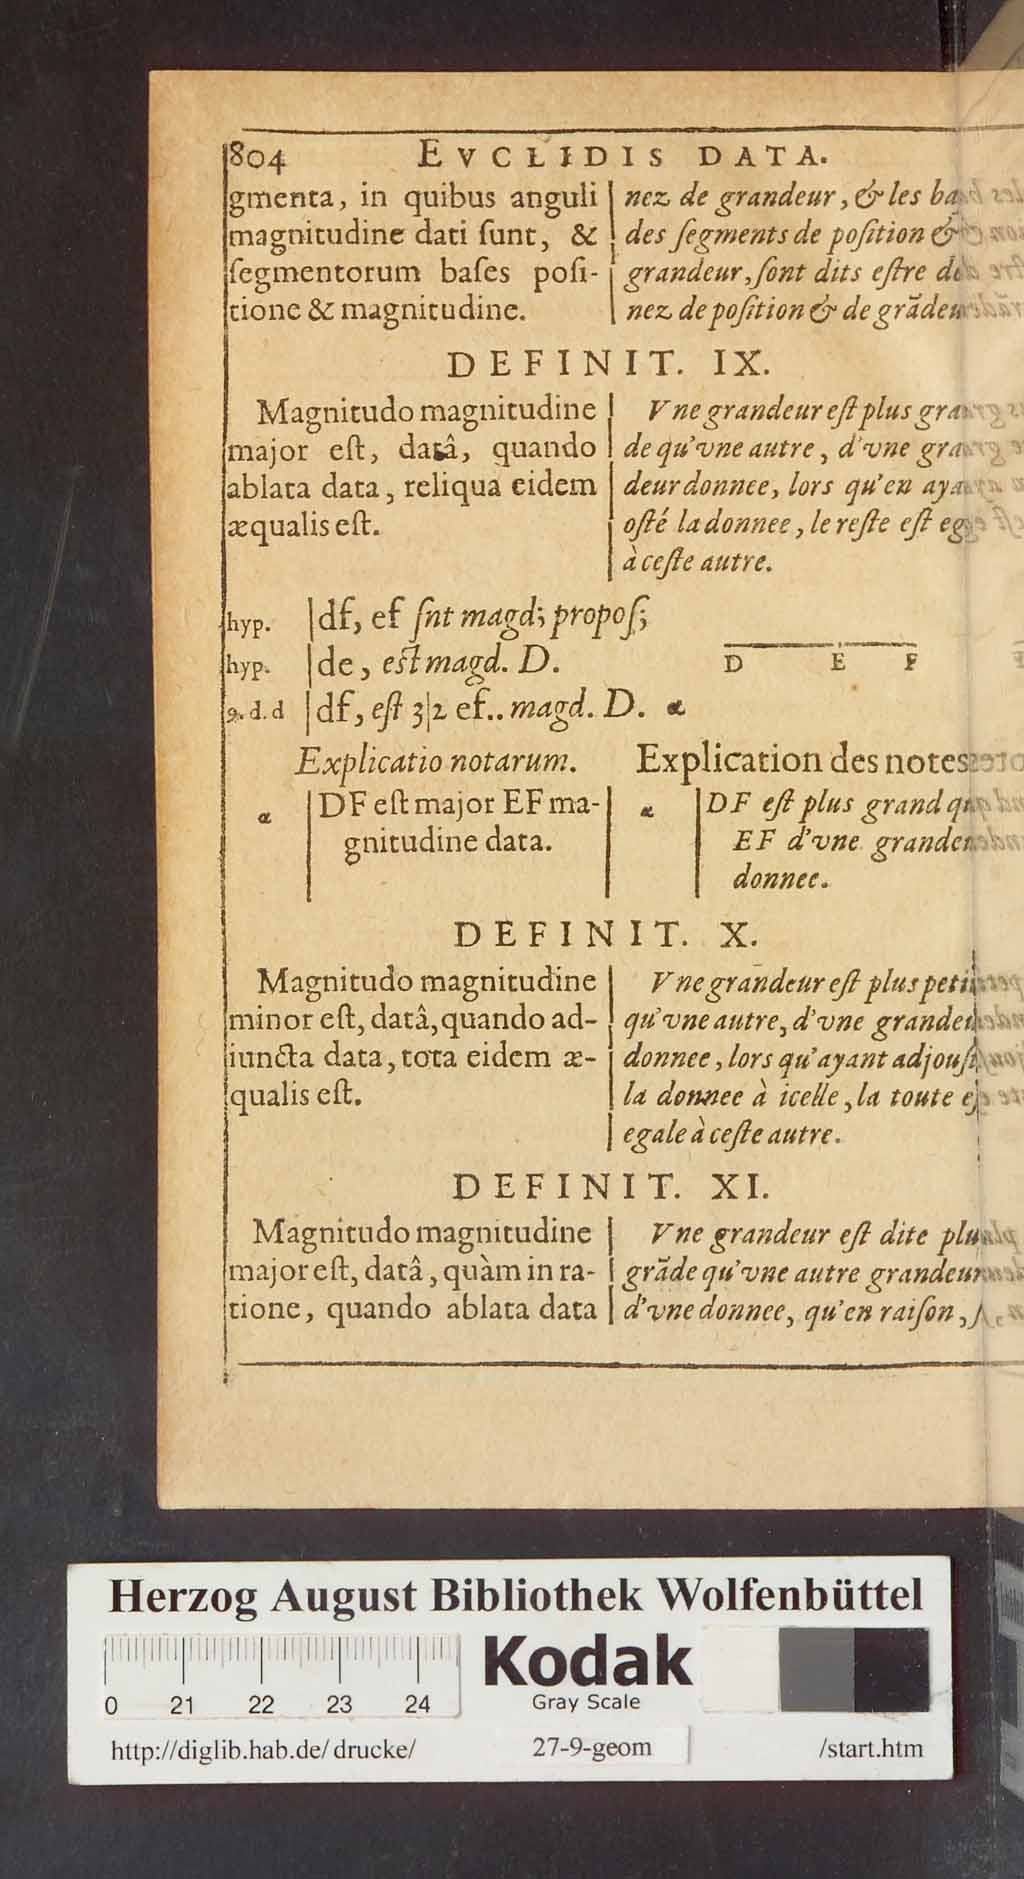 804 EVCLIDIS DATA.
gmenta, in quibus anguli
magnitudine dati ſunt, &
ſegmentorum baſes poſi-
tione & magnitudine.
nez de grandeur, & les
des ſegments de poſition &
grandeur, ſont dits eſtre
nez de poſition & de grãdeur
DEFINIT. IX.
Magnitudo magnitudine
major eſt, datâ, quando
ablata data, reliqua eidem
æqualis eſt.
Vne grandeur eſt plus gran
de qu'vne autre, d'vne gran
deur donnee, lors qu'en ayant
oſté la donnee, le reſte eſt
à ceſte autre.
hyp. df, ef ſnt magd; propoſ;
hyp. de, eſt magd. D.
D E F
9. d. d df, eſt 3|2 ef.. magd. D. α
Explicatio notarum.
α DF eſt major EF ma-
gnitudine data.
Explication des notes
α DF eſt plus grand que
EF d'vne grandeur
donnee.
DEFINIT. X.
Magnitudo magnitudine
minor eſt, datâ, quando ad-
iuncta data, tota eidem æ-
qualis eſt.
Vne grandeur eſt plus petite
qu'vne autre, d'vne grandeur
donnee, lors qu'ayant adjouſté
la donnee à icelle, la toute eſt
egale à ceſte autre.
DEFINIT. XI.
Magnitudo magnitudine
major eſt, datâ, quàm in ra-
tione, quando ablata data
Vne grandeur eſt dite plus
grãde qu'vne autre grandeur
d'vne donnee, qu'en raiſon,
Herzog August Bibliothek Wolfenbüttel
0 21 22 23 24
Kodak
Gray Scale
http://diglib.hab.de/drucke/ 27-9-geom /start.htm